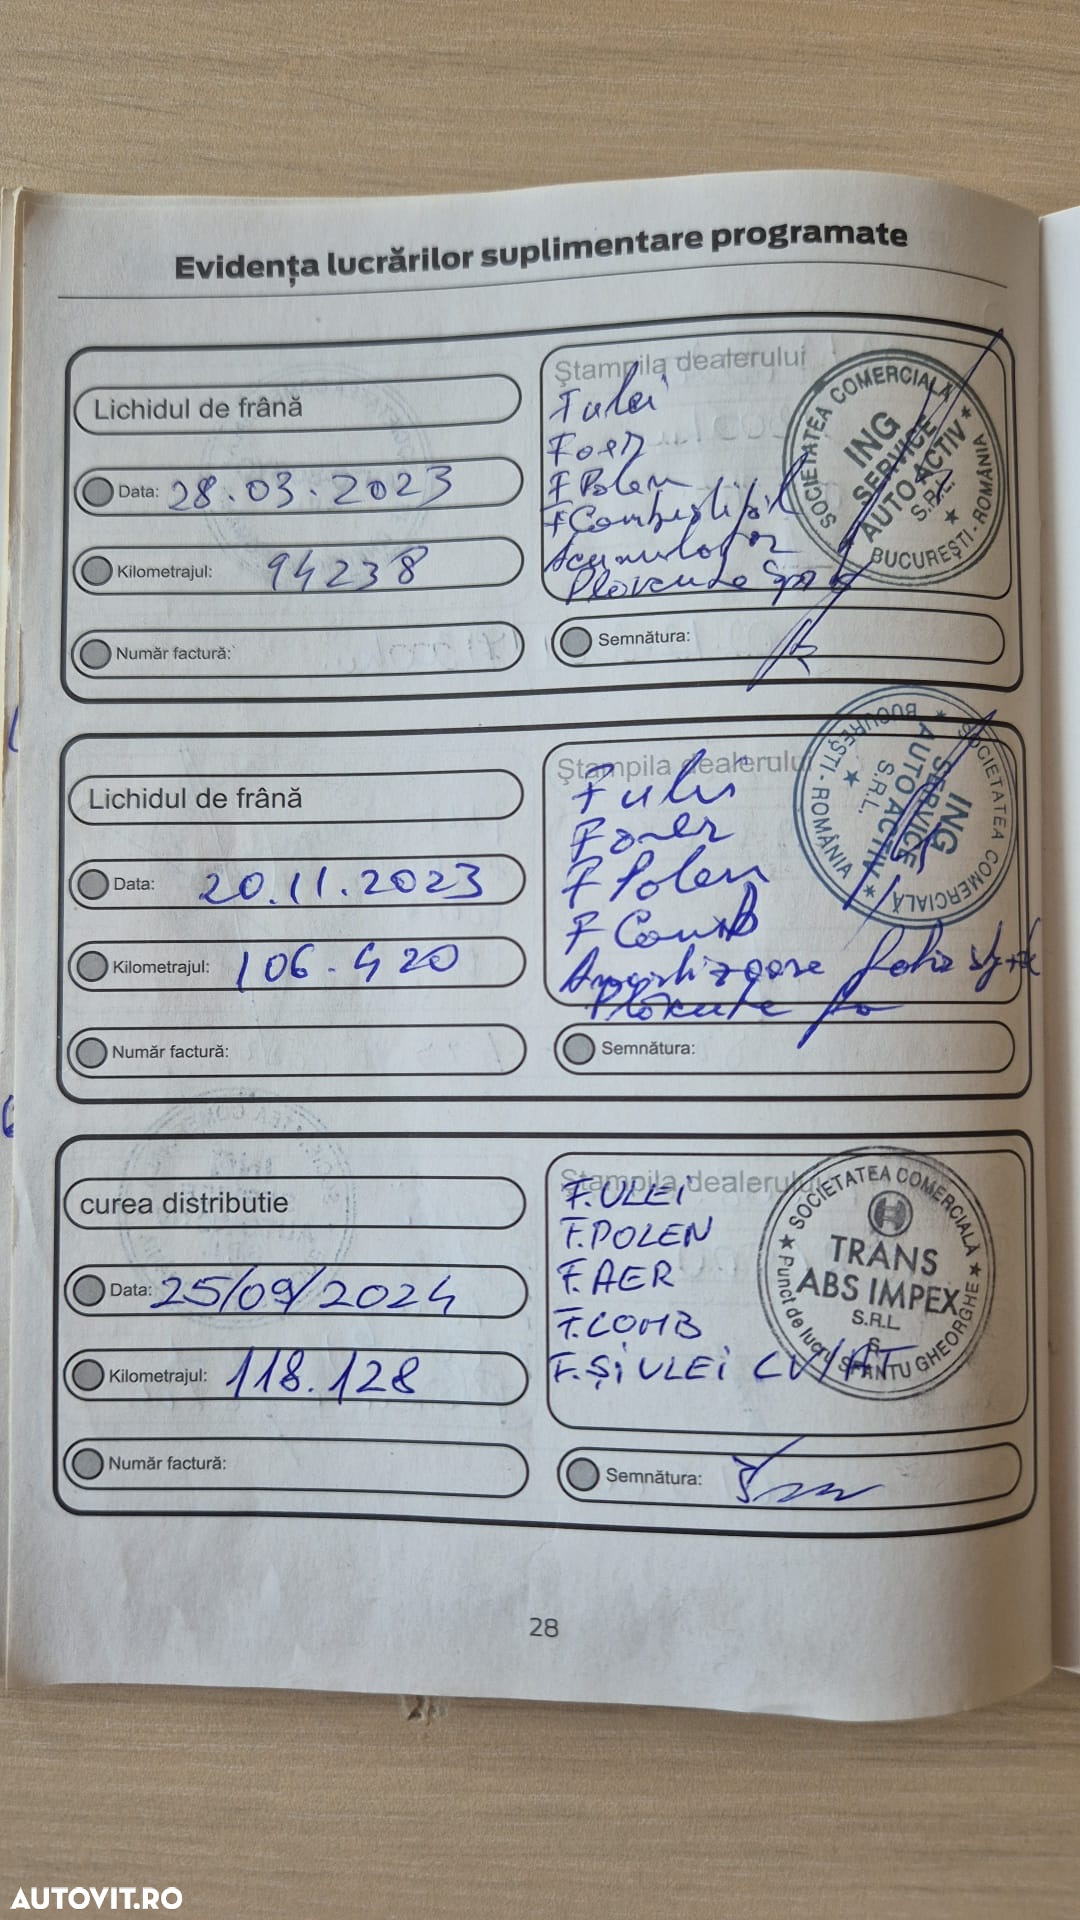 Evidența lucrărilor suplimentare programate
Lichidul de frână
Data: 28.03.2023
Kilometrajul: 94238
Număr factură:
Ștampila dealerului
F ulei
F aer
F Polen
F Combustibil
Acumulator
Placute
SOCIETATEA COMERCIALĂ
ING
SERVICE
AUTO ACTIV
S.R.L.
BUCUREȘTI - ROMÂNIA
Semnătura:
Lichidul de frână
Data: 20.11.2023
Kilometrajul: 106.420
Număr factură:
Ștampila dealerului
F ulei
F aer
F Polen
F Comb
Amortizoare
Placute
SOCIETATEA COMERCIALĂ
ING
SERVICE
AUTO ACTIV
S.R.L.
BUCUREȘTI - ROMÂNIA
Semnătura:
curea distributie
Data: 25/09/2024
Kilometrajul: 118.128
Număr factură:
Ștampila dealerului
F.ULEI
F.POLEN
F.AER
F.COMB
F.ȘI ULEI CV/AT
SOCIETATEA COMERCIALĂ
TRANS
ABS IMPEX
S.R.L.
Punct de lucru SFANTU GHEORGHE
Semnătura:
28
AUTOVIT.RO